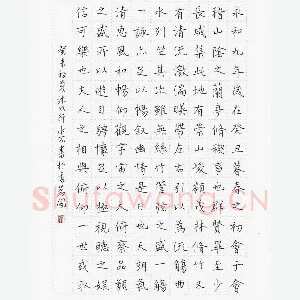 永和九年歲在癸丑暮春之初會于會
稽山陰之蘭亭脩禊事也群賢畢至少
長咸集此地有崇山峻領茂林脩竹又
有清流激湍暎帶左右引以為流觴曲
水列坐其次雖無絲竹管弦之盛一觴
一詠亦足以暢叙幽情是日也天朗氣
清惠風和暢仰觀宇宙之大俯察品類
之盛所以遊目騁懷足以極視聽之娛
信可樂也夫人之相與俯仰一世或取
Shufawang.cn